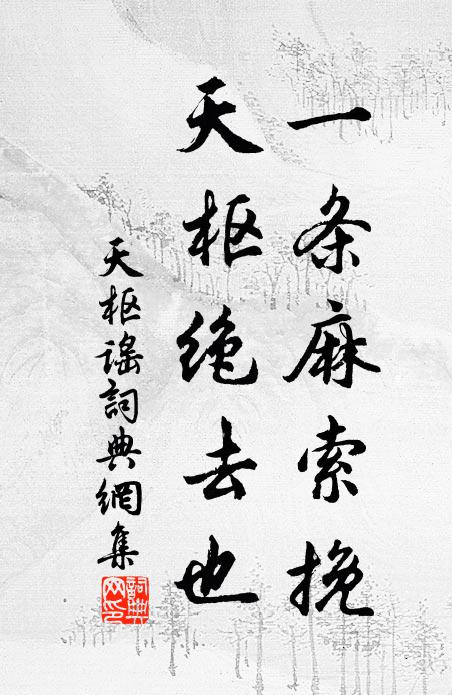 一条麻索挽
天枢绝去也
天枢谣詞典網集
詞典
网印